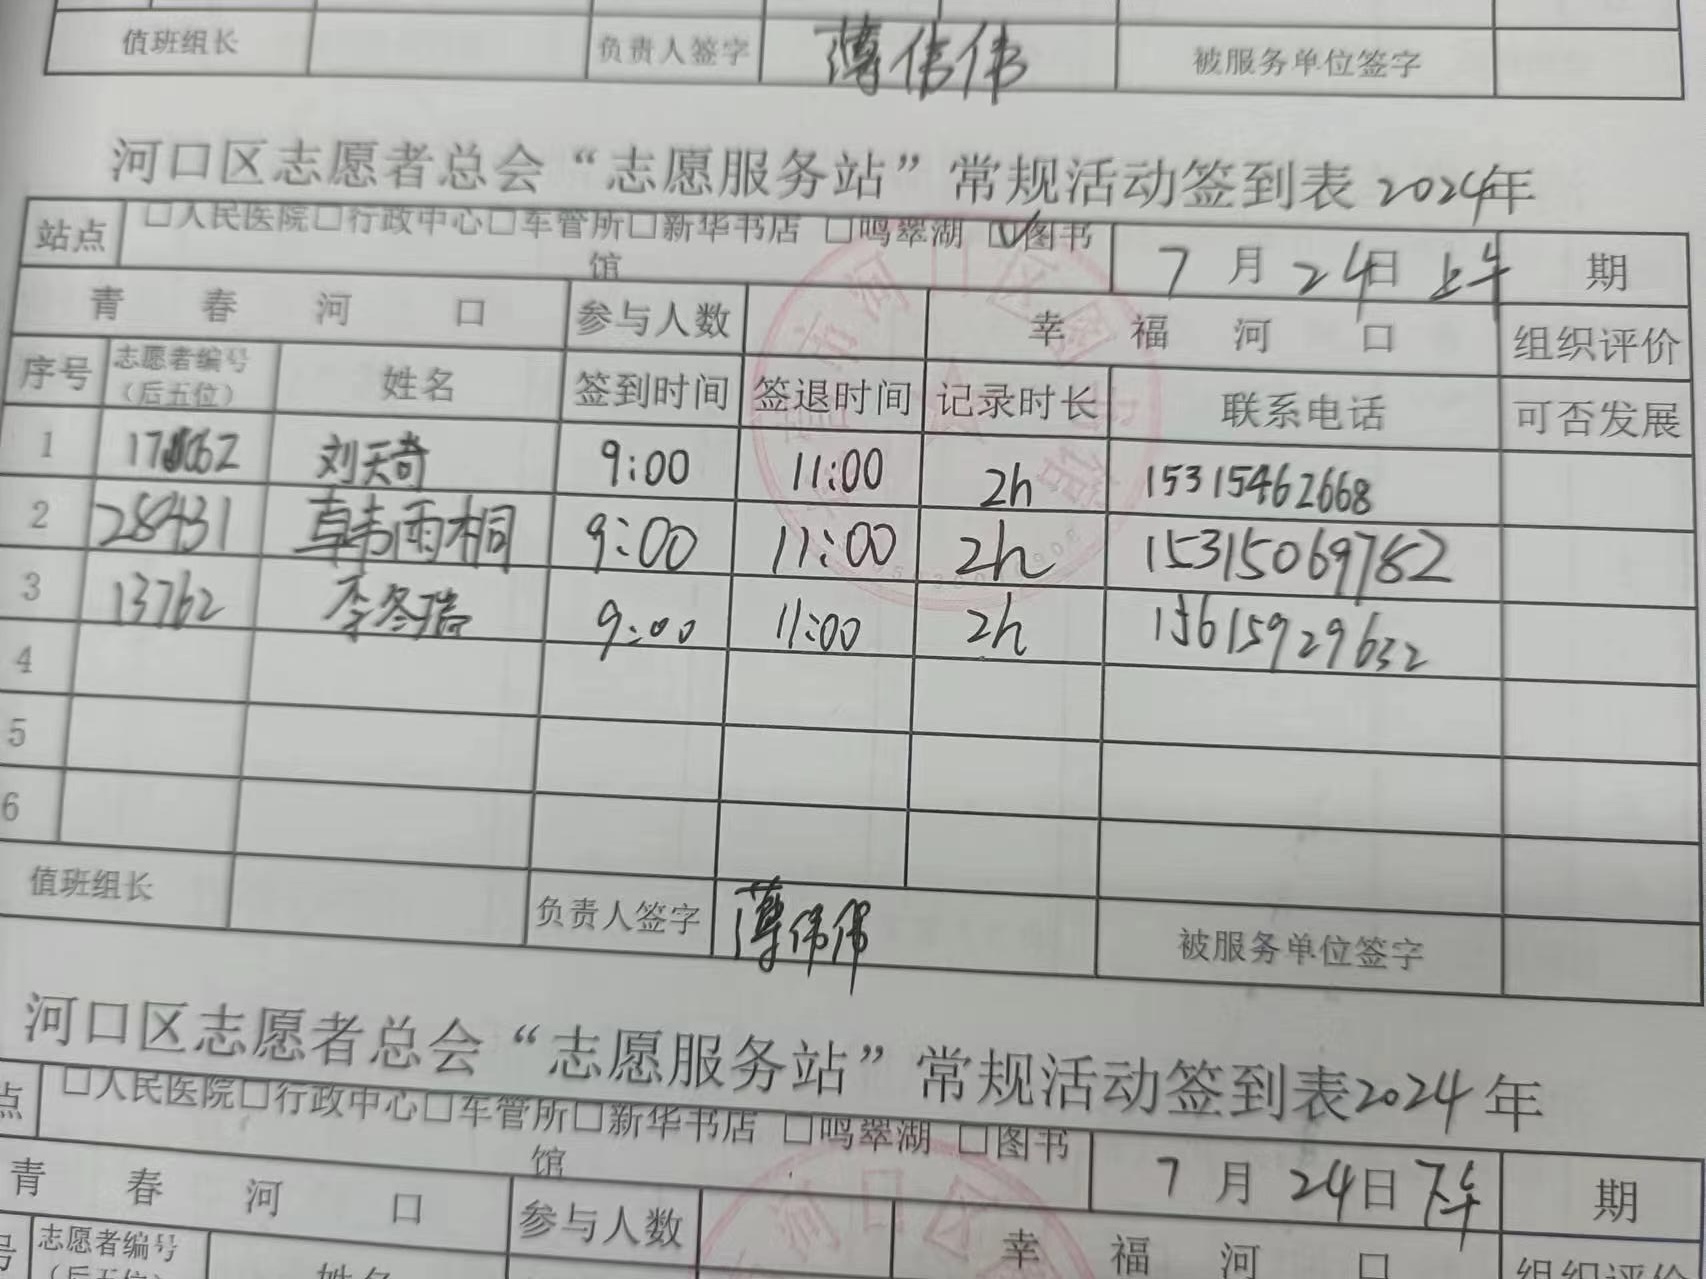 值班组长 负责人签字 薄伟伟 被服务单位签字
河口区志愿者总会“志愿服务站”常规活动签到表 2024年
站点 □人民医院□行政中心□车管所□新华书店 □鸣翠湖 ☑图书馆 7 月 24日 上午 期
青 春 河 口 参与人数 幸 福 河 口 组织评价
序号 志愿者编号（后五位） 姓名 签到时间 签退时间 记录时长 联系电话 可否发展
1 刘天奇 9:00 11:00 2h 15315462668
2 28431 韦雨桐 9:00 11:00 2h 15315069782
3 13762 李冬瑞 9:00 11:00 2h 15615929632
4
5
6
值班组长 负责人签字 薄伟伟 被服务单位签字
河口区志愿者总会“志愿服务站”常规活动签到表2024年
点 □人民医院□行政中心□车管所□新华书店 □鸣翠湖 □图书馆 7 月 24日 下午 期
青 春 河 口 参与人数 幸 福 河 口 组织评价
号 志愿者编号（后五位） 姓名